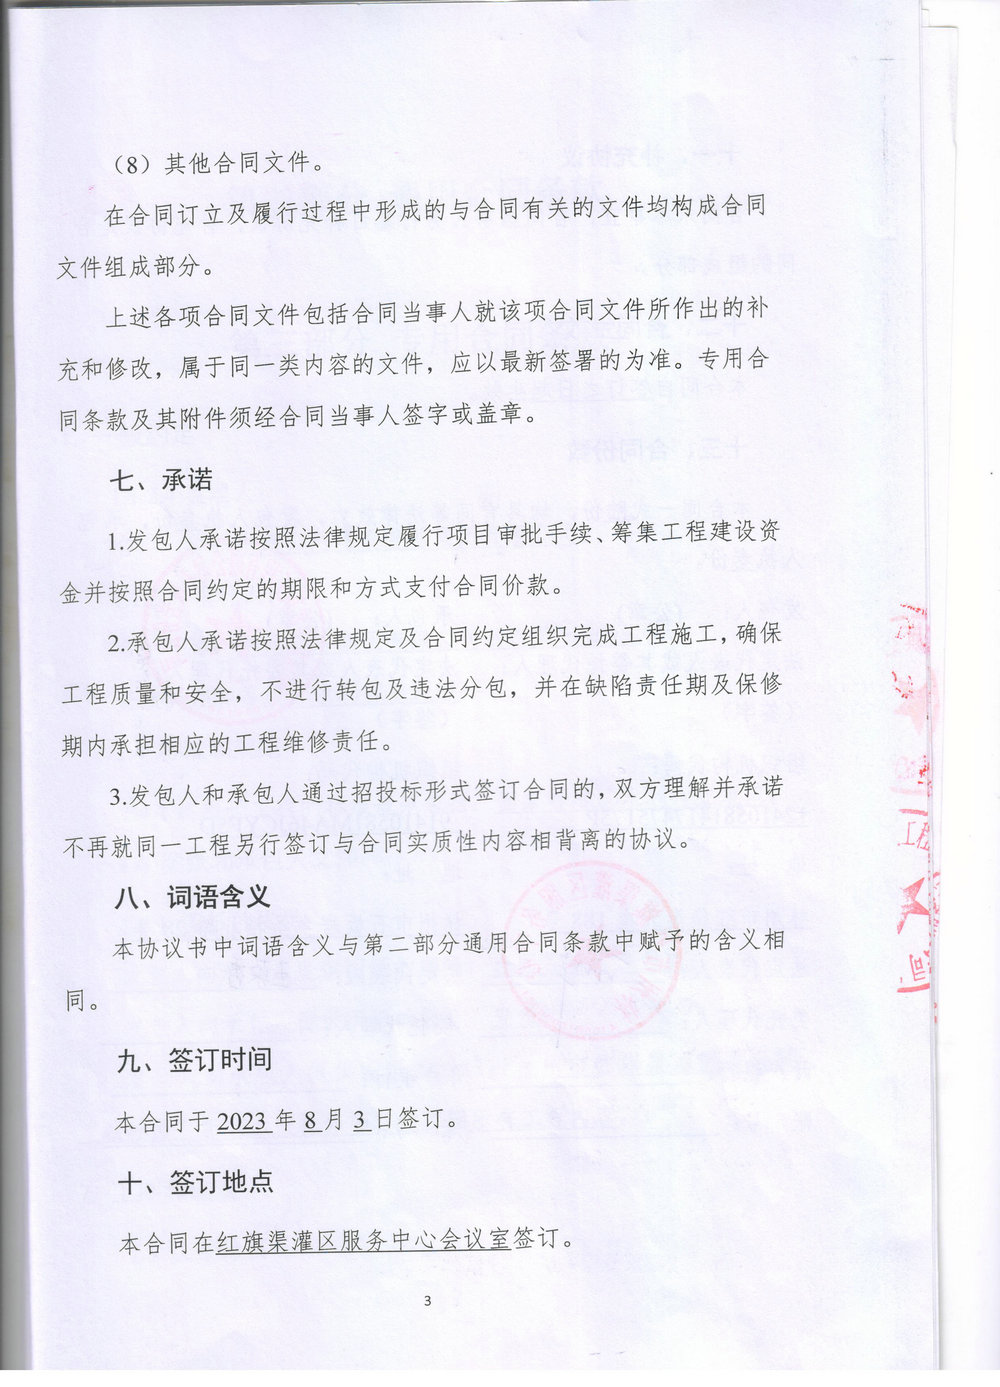 （8）其他合同文件。
在合同订立及履行过程中形成的与合同有关的文件均构成合同
文件组成部分。
上述各项合同文件包括合同当事人就该项合同文件所作出的补
充和修改，属于同一类内容的文件，应以最新签署的为准。专用合
同条款及其附件须经合同当事人签字或盖章。
七、承诺
1.发包人承诺按照法律规定履行项目审批手续、筹集工程建设资
金并按照合同约定的期限和方式支付合同价款。
2.承包人承诺按照法律规定及合同约定组织完成工程施工，确保
工程质量和安全，不进行转包及违法分包，并在缺陷责任期及保修
期内承担相应的工程维修责任。
3.发包人和承包人通过招投标形式签订合同的，双方理解并承诺
不再就同一工程另行签订与合同实质性内容相背离的协议。
八、词语含义
本协议书中词语含义与第二部分通用合同条款中赋予的含义相
同。
九、签订时间
本合同于 2023 年 8 月 3 日签订。
十、签订地点
本合同在红旗渠灌区服务中心会议室签订。
3
工程